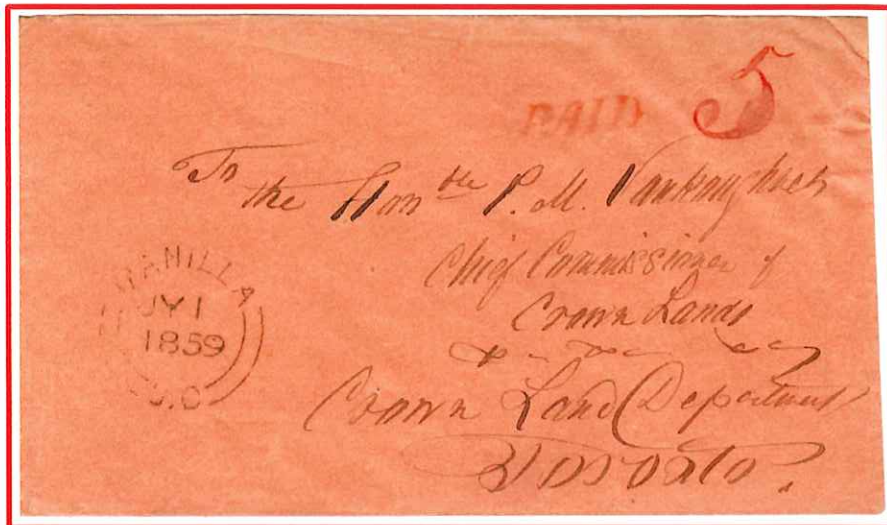 PAID 5
To
the Hon^ble P. M. Vankoughnet
Chief Commissioner of
Crown Lands
Crown Land Department
Toronto.
JY 1
1859
U.C